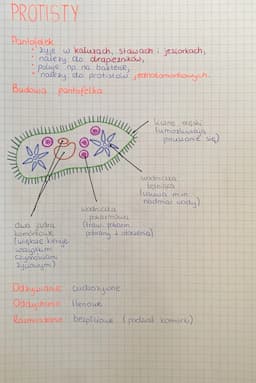 PROTISTY
Pantofelek
• żyje w kałużach, stawach i jeziorkach,
• należy do drapieżników,
• poluje np. na bakterie,
• należy do protistów jednokomórkowych.
Budowa pantofelka
liczne rzęski
(umożliwiają
poruszanie się)
wodniczka
tętniąca
(usuwa m.in.
nadmiar wody)
wodniczka
pokarmowa
(trawi pokarm
pobrany z otoczenia)
dwa jądra
komórkowe
(większe kieruje
wszystkimi
czynnościami
życiowymi)
Odżywianie: cudzożywne
Oddychanie: tlenowe
Rozmnażanie: bezpłciowe (podział komórki)